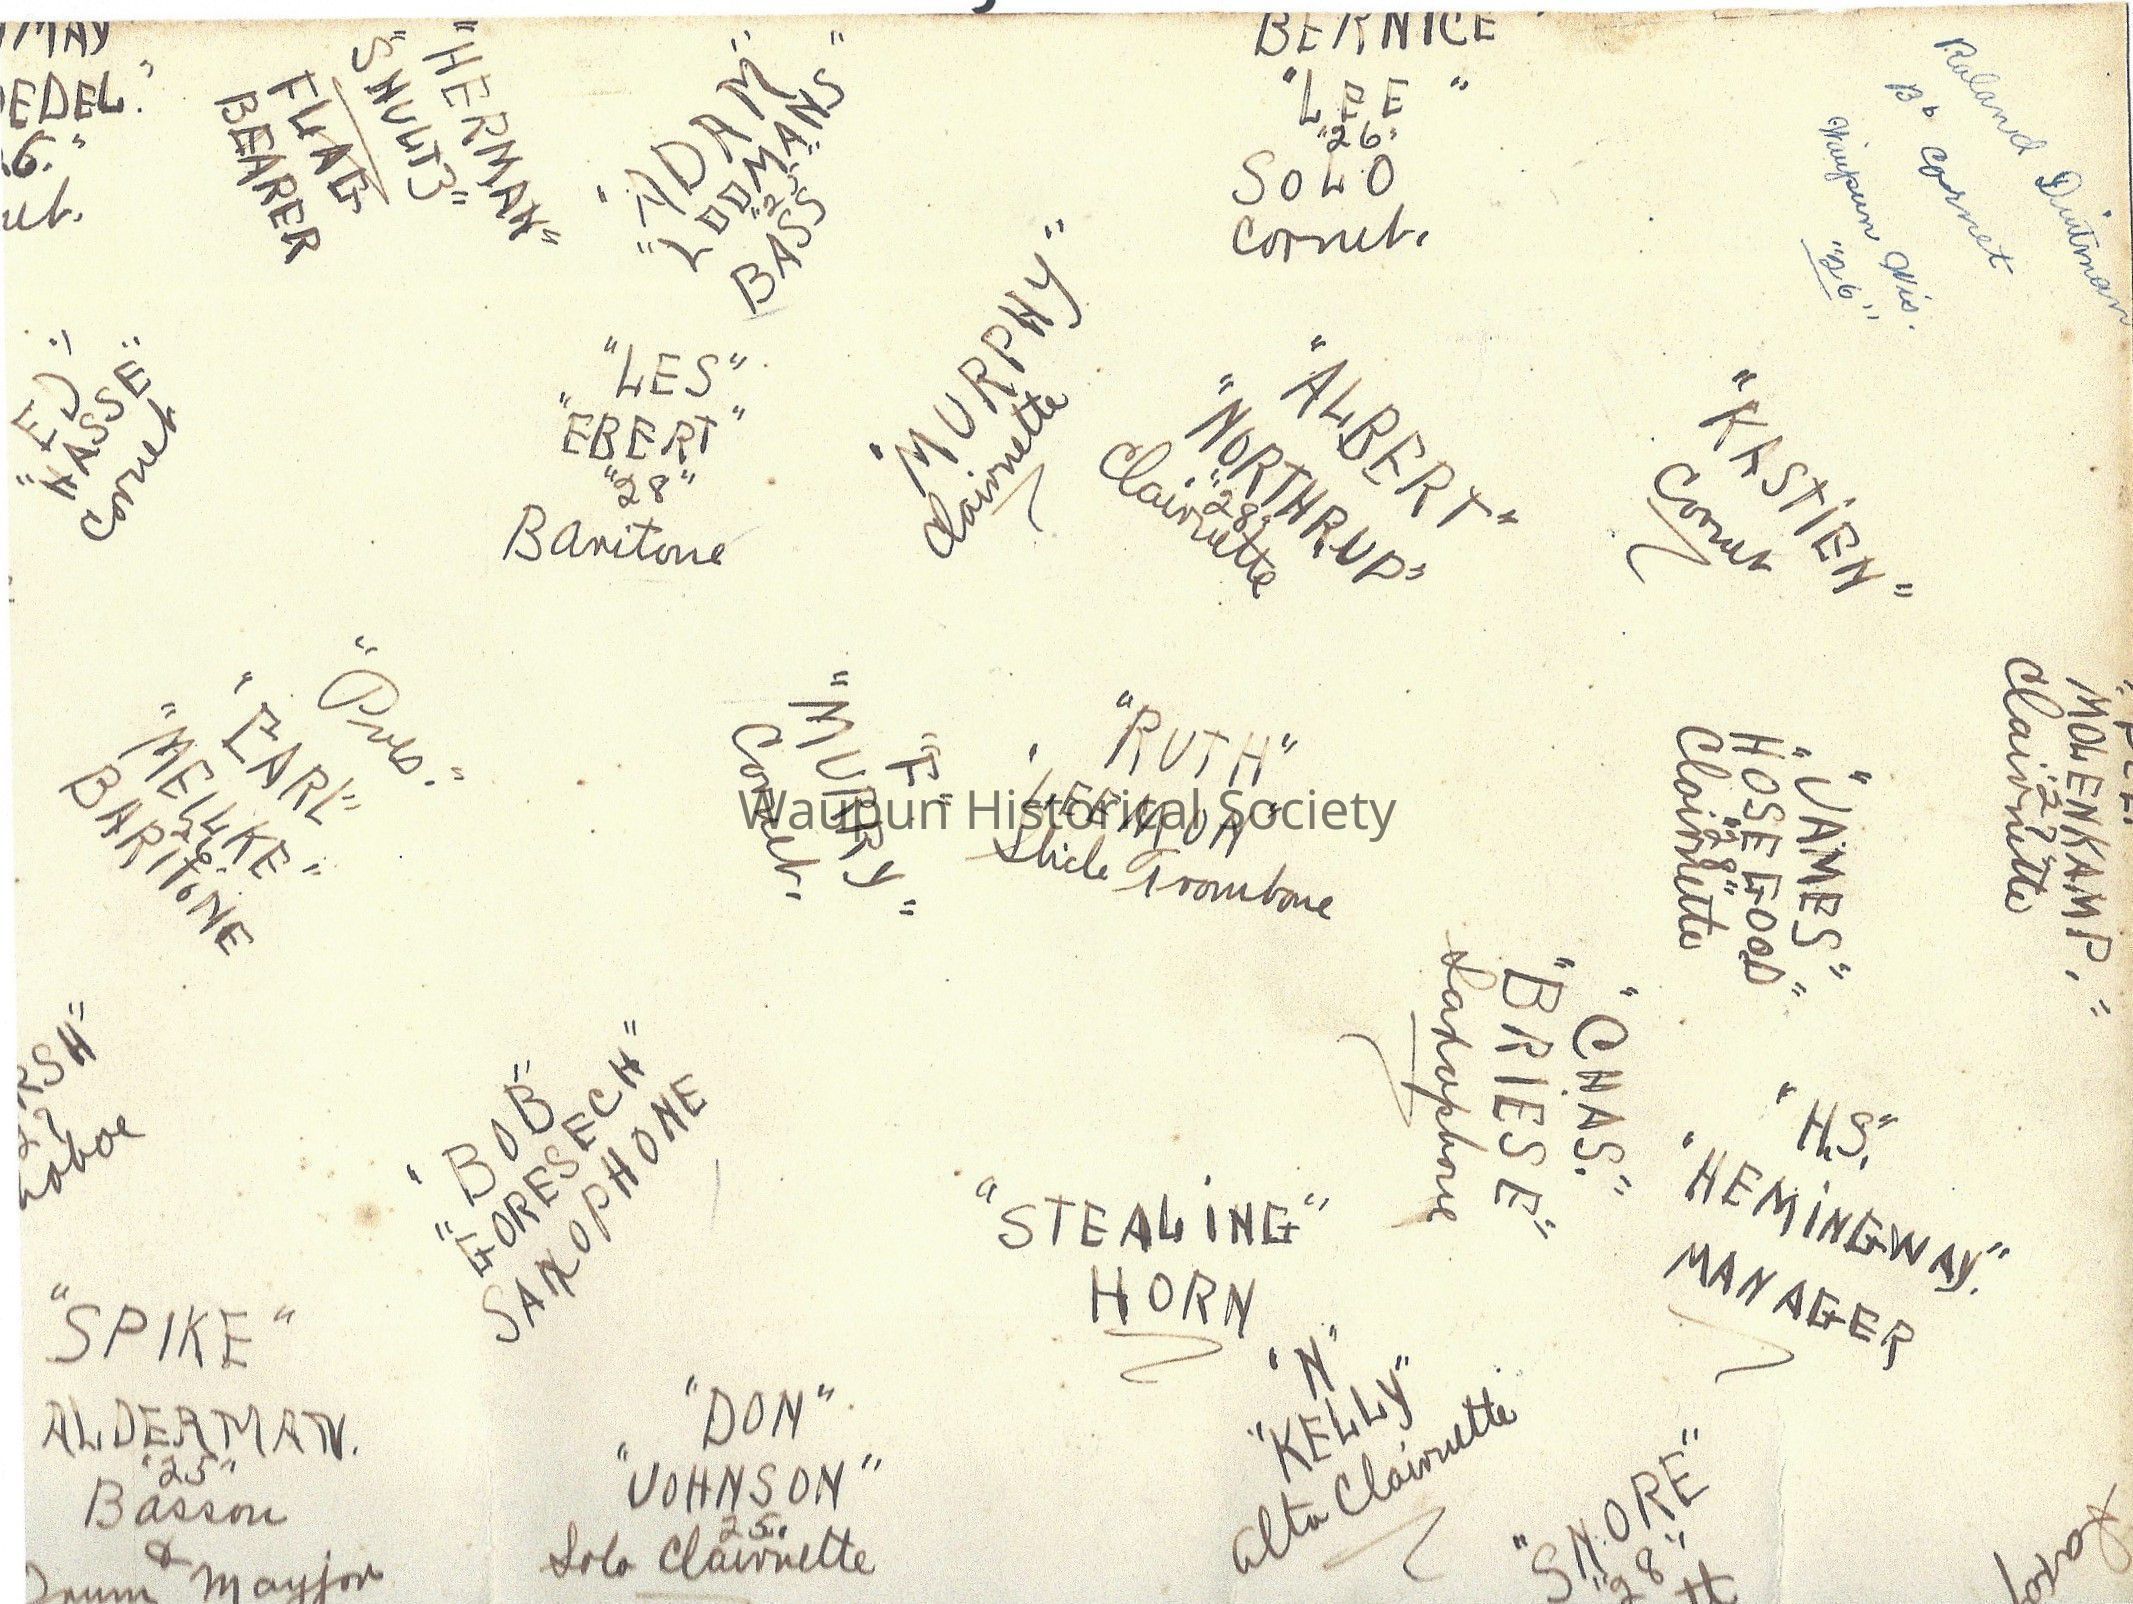 MAY
EDEL."
6."
"HERMAN"
"SHULTZ"
FLAG
BEARER
"ADAM"
"LOOMANS"
"25"
BASS
BERNICE
"LEE"
"26"
SOLO
Cornet.
Roland Duitman
Bb Cornet
Waupun Wis.
"26"
"ED"
"HASSE"
Cornet
"LES"
"EBERT"
"28"
Baritone
"MURPHY"
Clairnette
"ALBERT"
"NORTHRUP"
"28"
Clairnette
"KASTiEN"
Cornet
"Pres."
"EARL"
"MELLKE"
BARITONE
"F"
"MURRY"
Cornet.
"RUTH"
"LEENON"
Slide Trombone
"JAMES"
"HOSEGOOD"
"28"
Clairnette
MOLENKAMP."
"27"
Clairnette
RSH"
27
"BOB"
"GORESECH"
SAXOPHONE
"CHAS."
"BRIESE"
Saxophone
"H.S."
"HEMiNGWAY."
MANAGER
"STEALiNG"
HORN
"SPIKE"
ALDERMAN.
"25"
Basson
&
Drum Mayjor
"DON"
"JOHNSON"
25.
Solo Clairnette
"N"
"KELLY"
Alto Clairnette
"SNORE"
"28"
Waupun Historical Society